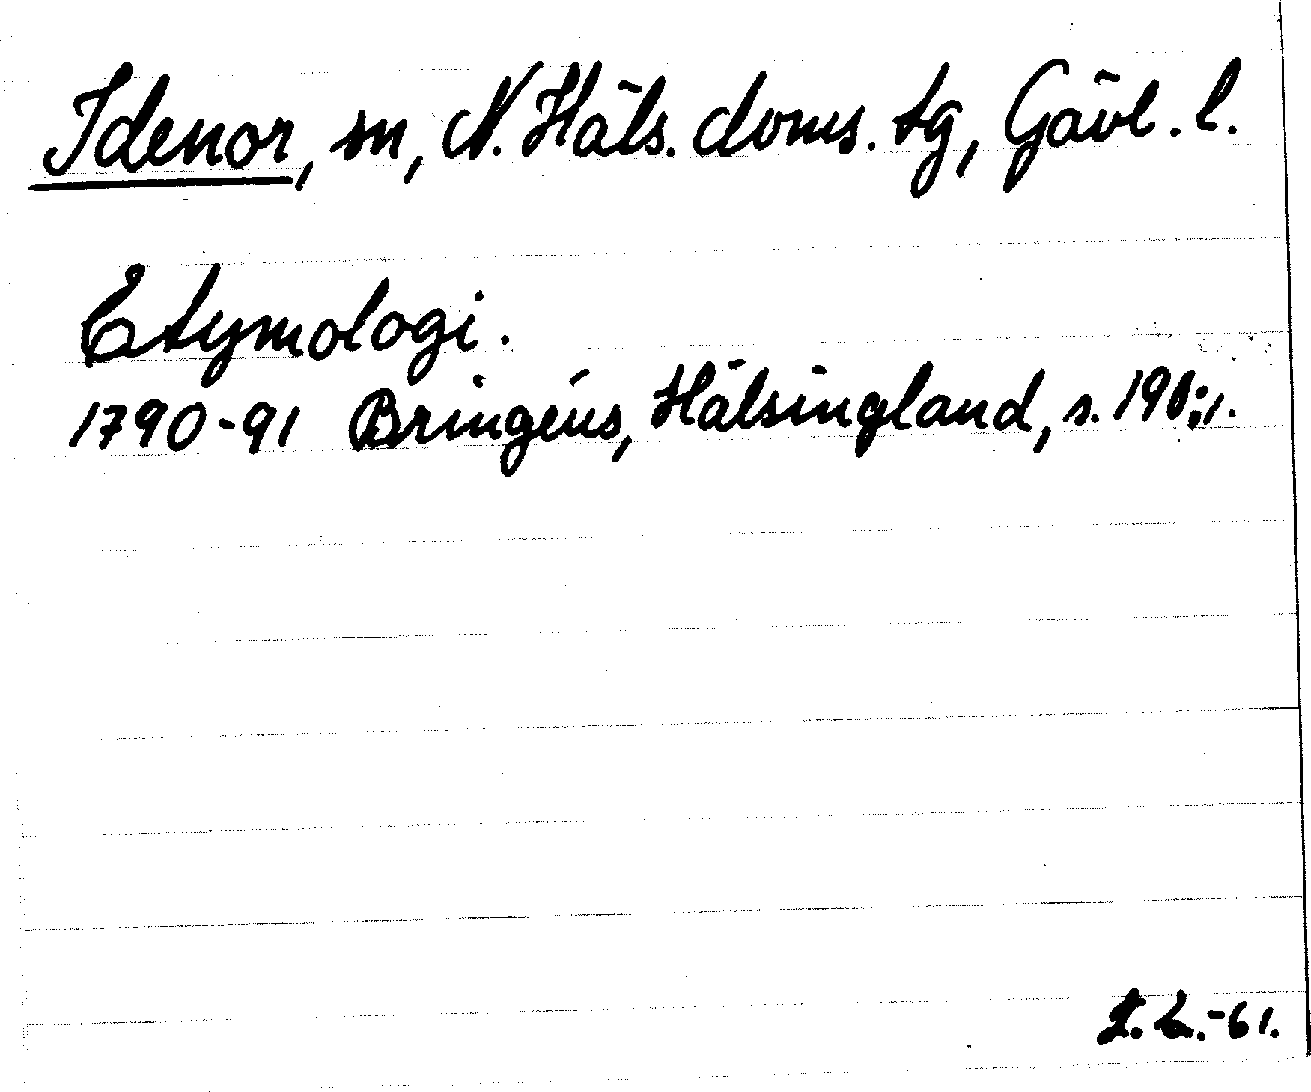 Idenor, sn, N. Häls. doms. tg, Gävl. l.
Etymologi.
1790-91 Bringéus, Hälsingland, s. 198;1.
L.-61.